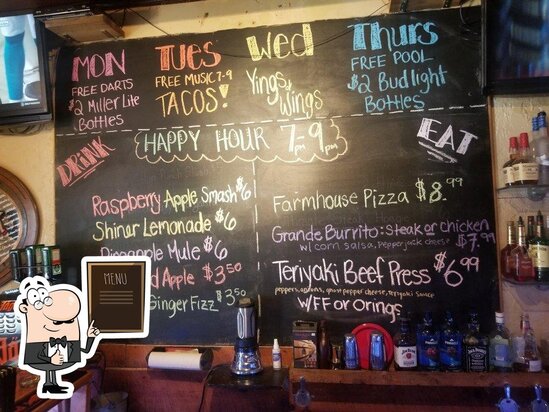 MON
FREE DARTS
$2 Miller Lite
Bottles
TUES
FREE MUSIC 7-9
TACOS!
Wed
Yings &
Wings
Thurs
FREE POOL
$2 Budlight
Bottles
HAPPY HOUR 7pm-9pm
DRINK
EAT
Raspberry Apple Smash $6
Shinar Lemonade $6
Pineapple Mule $6
Apple $3.50
Ginger Fizz $3.50
Farmhouse Pizza $8.99
Grande Burrito: Steak or chicken
w/ corn salsa, Pepperjack cheese $7.99
Teriyaki Beef Press $6.99
peppers, onions, ghost pepper cheese, teriyaki sauce
w/FF or Orings
MENU